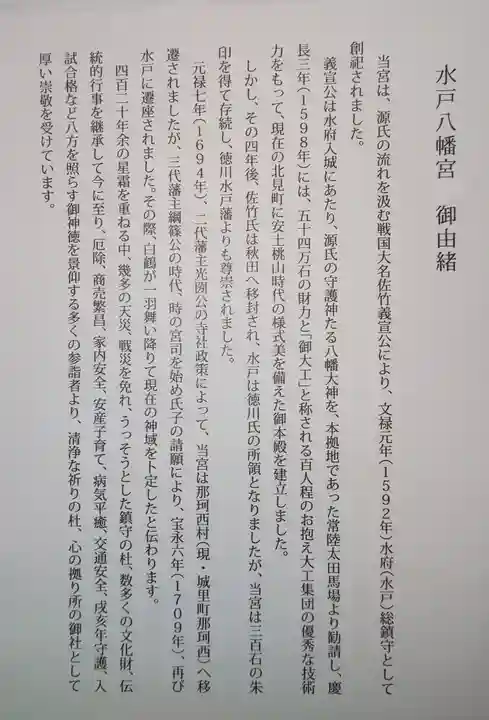 水戸八幡宮　御由緒
当宮は、源氏の流れを汲む戦国大名佐竹義宣公により、文禄元年(1592年)水府(水戸)総鎮守として
創祀されました。
義宣公は水府入城にあたり、源氏の守護神たる八幡大神を、本拠地であった常陸太田馬場より勧請し、慶
長三年(1598年)には、五十四万石の財力と「御大工」と称される百人程のお抱え大工集団の優秀な技術
力をもって、現在の北見町に安土桃山時代の様式美を備えた御本殿を建立しました。
しかし、その四年後、佐竹氏は秋田へ移封され、水戸は徳川氏の所領となりましたが、当宮は三百石の朱
印を得て存続し、徳川水戸藩よりも尊崇されました。
元禄七年(1694年)、二代藩主光圀公の寺社政策によって、当宮は那珂西村(現・城里町那珂西)へ移
遷されましたが、三代藩主綱篠公の時代、時の宮司を始め氏子の請願により、宝永六年(1709年)、再び
水戸に遷座されました。その際、白鶴が一羽舞い降りて現在の神域を卜定したと伝わります。
四百二十年余の星霜を重ねる中、幾多の天災、戦災を免れ、うっそうとした鎮守の杜、数多くの文化財、伝
統的行事を継承して今に至り、厄除、商売繁昌、家内安全、安産子育て、病気平癒、交通安全、戌亥年守護、入
試合格など八方を照らす御神徳を景仰する多くの参詣者より、清浄な祈りの杜、心の拠り所の御社として
厚い崇敬を受けています。